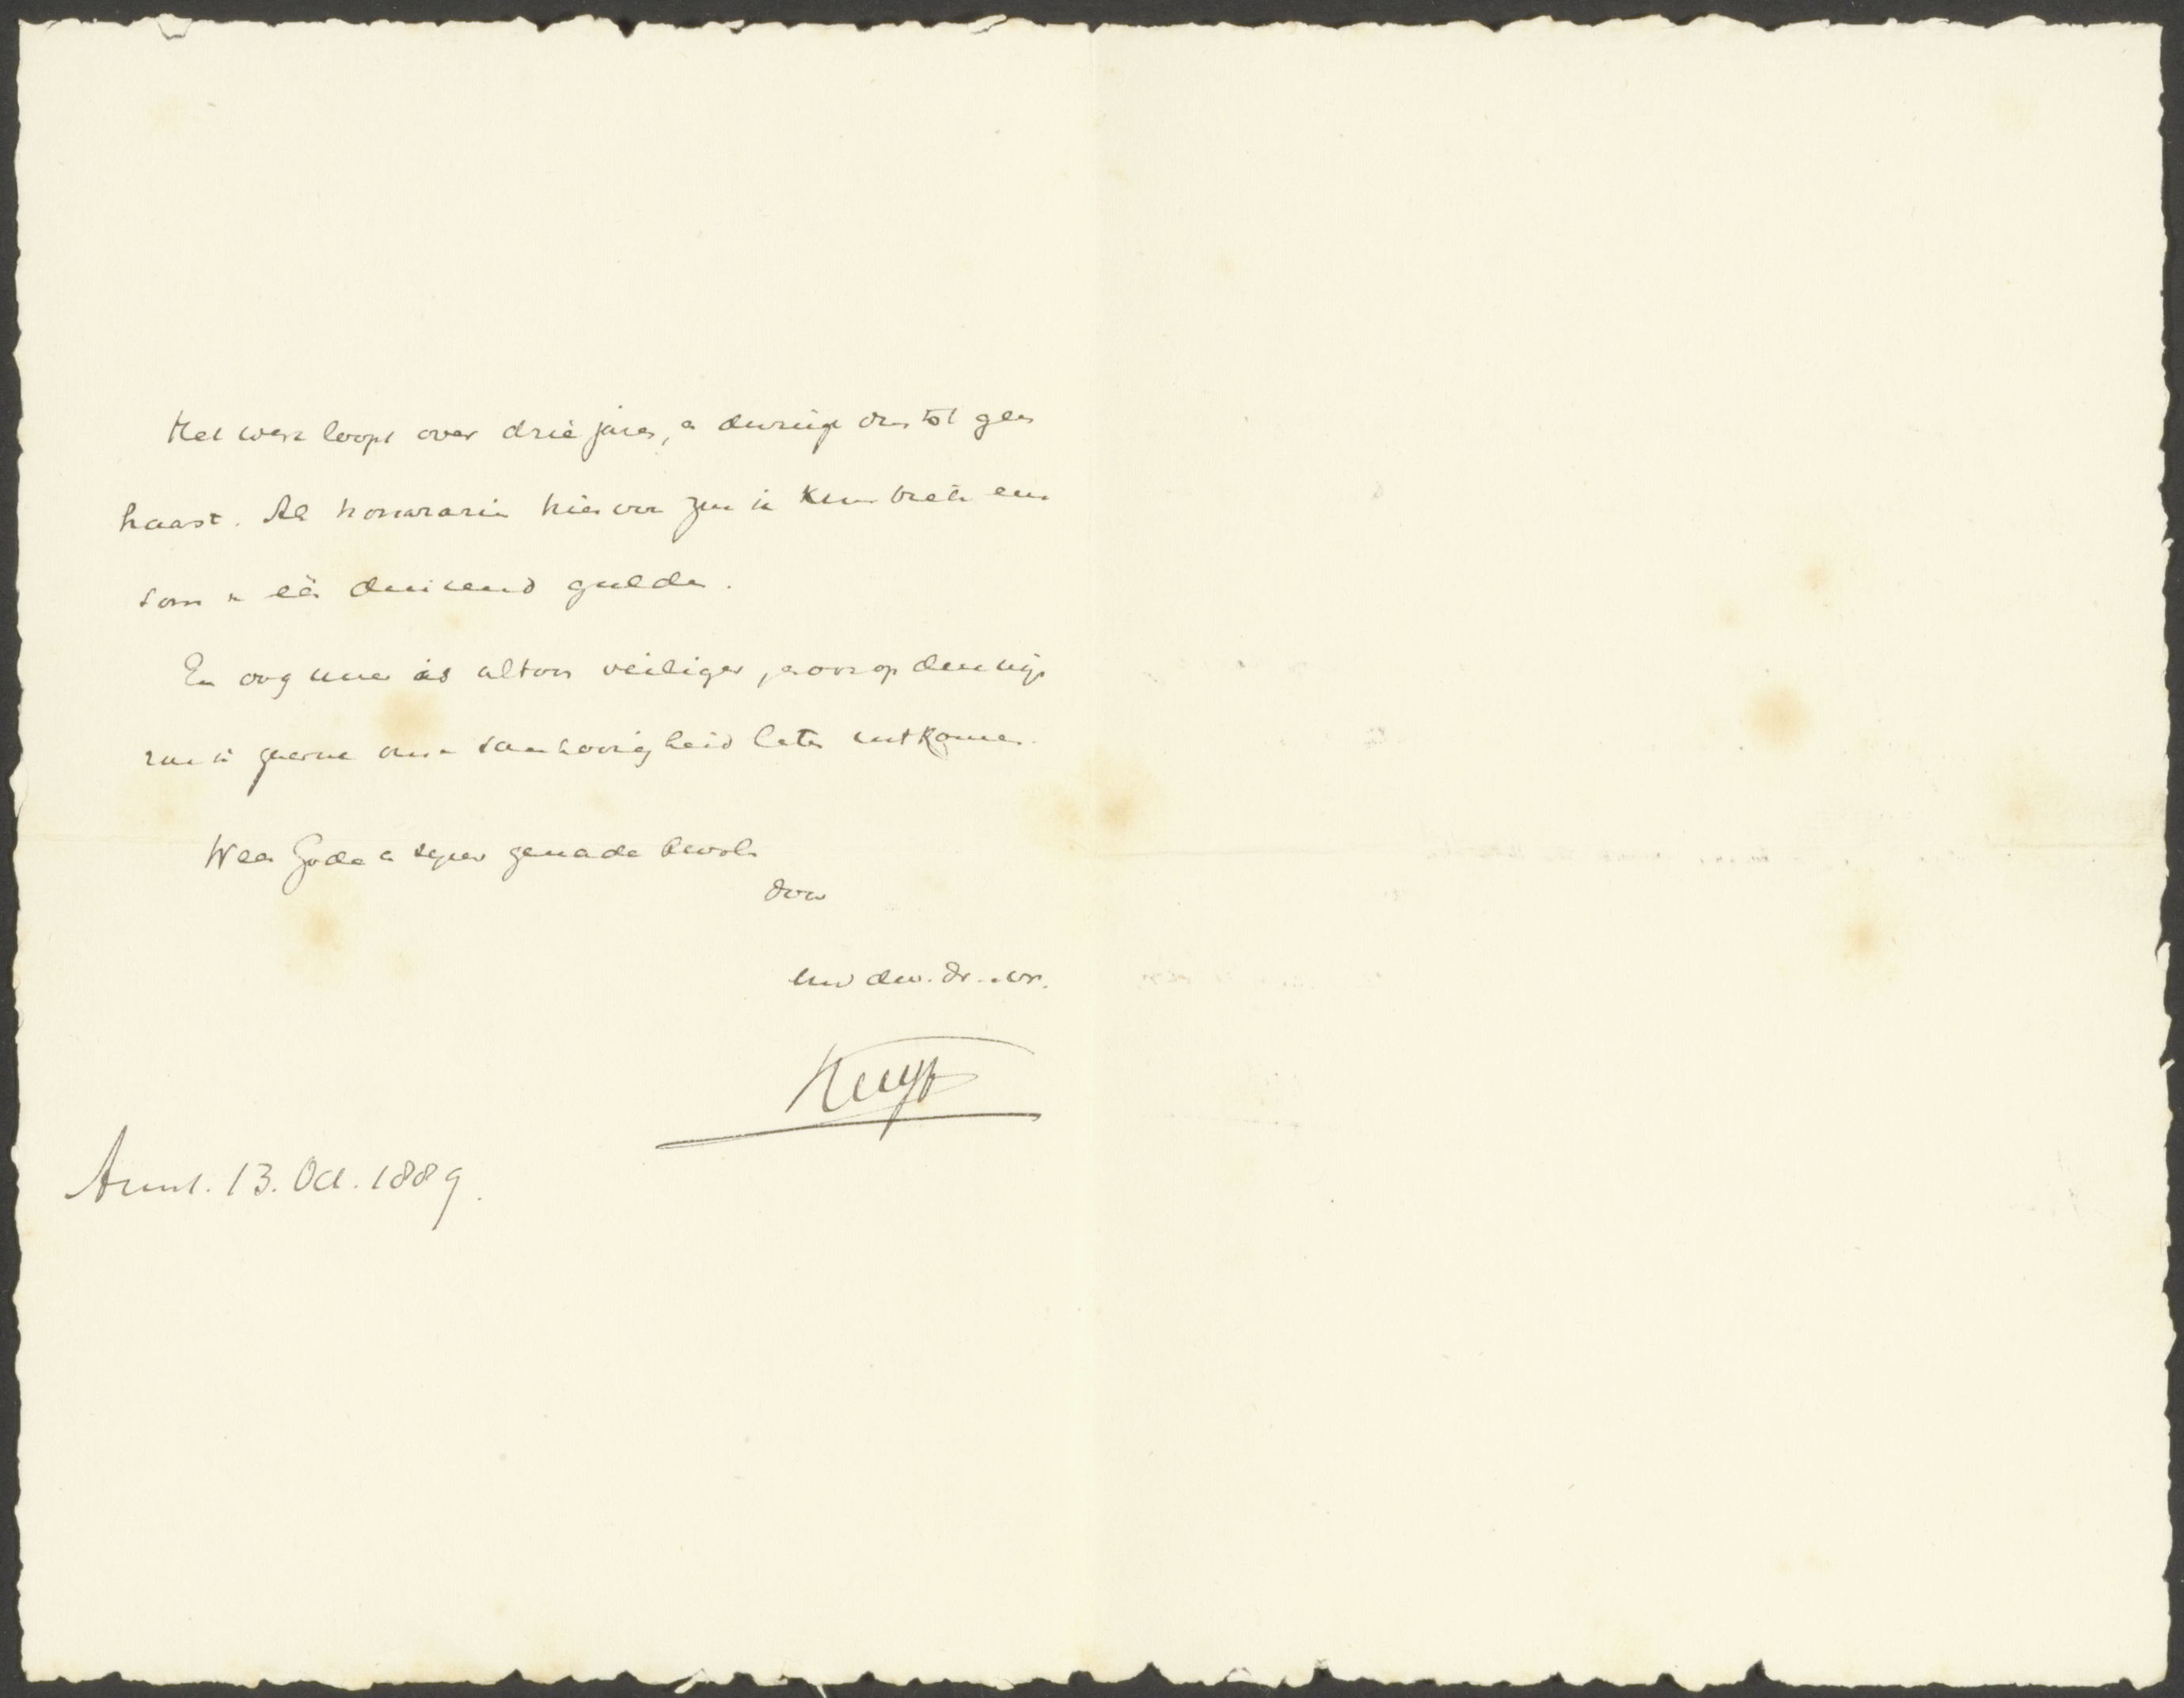 Het werk loopt over drie jaren, en dwingt dus tot geen
haast. Als honorarium hiervoor zou ik kunnen bieden eene
som van één duizend gulden.
En oog meer is altoos veiliger, ook op den
zou ik gaarne onze saamhoorigheid laten uitkomen.
Wees Gode en zijner genade bevolen
door
Uw dw. dr. en vr.
Kuyper
Amst. 13. Oct. 1889.